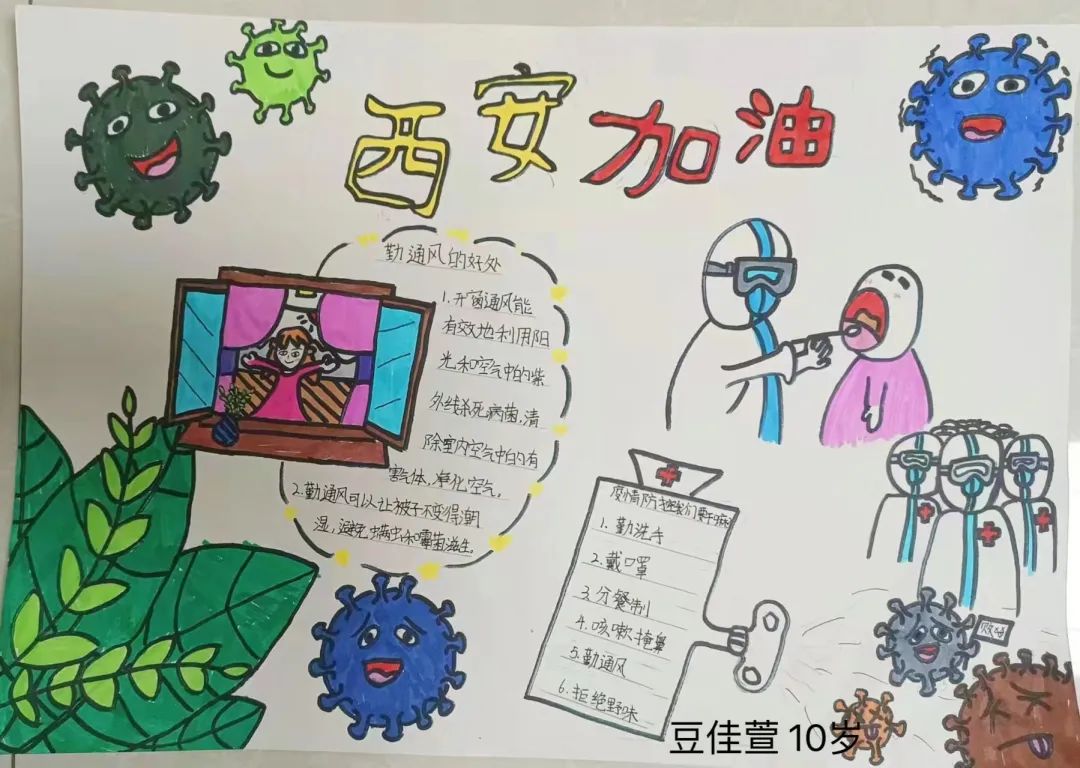 西安加油
勤通风的好处
1.开窗通风能
有效地利用阳
光和空气中的紫
外线杀死病菌,清
除室内空气中的有
害气体,净化空气。
2.勤通风可以让被子不变得潮
湿,避免螨虫和霉菌滋生。
疫情防控我们要干嘛
1.勤洗手
2.戴口罩
3.分餐制
4.咳嗽掩鼻
5.勤通风
6.拒绝野味
豆佳萱 10岁